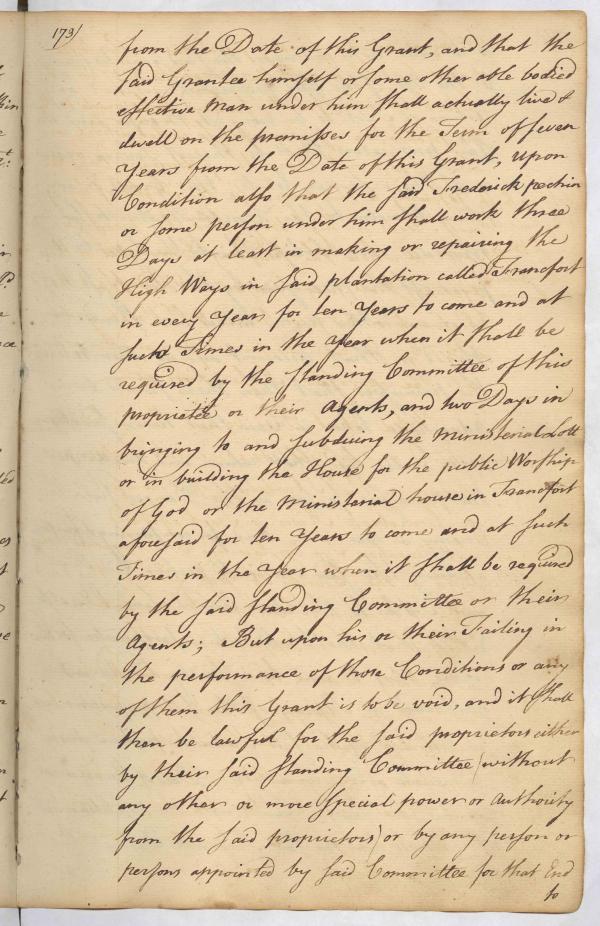 173/
from the Date of this Grant, and that the
said Grantee himself or some other able bodied
effective man under him shall actually live &
dwell on the premisses for the Term of seven
Years from the Date of this Grant, upon
Condition also that the said Frederick pechin
or some person under him shall work three
Days at least in making or repairing the
High Ways in said plantation called Francfort
in every Year, for ten Years to come and at
such Times in the Year when it shall be
required by the standing Committee of this
proprietee or their Agents, and two Days in
bringing to and subduing the Ministerial Lott
or in building the House for the public Worship
of God or the Ministerial house in Francfort
aforesaid for ten Years to come and at such
Times in the Year when it shall be required
by the said standing Committee or their
Agents; But upon his or their Failing in
the performance of those Conditions or any
of them this Grant is to be void, and it shall
then be lawful for the said proprietors either
by their said standing Committee (without
any other or more special power or authority
from the said proprietors) or by any person or
persons appointed by said Committee for that End
to